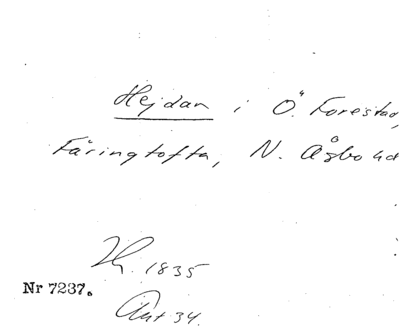 Hejdan i Ö. Forestad,
Färingtofta, N. Åsbo hd
1835
Nr 7237.
Ant 34.